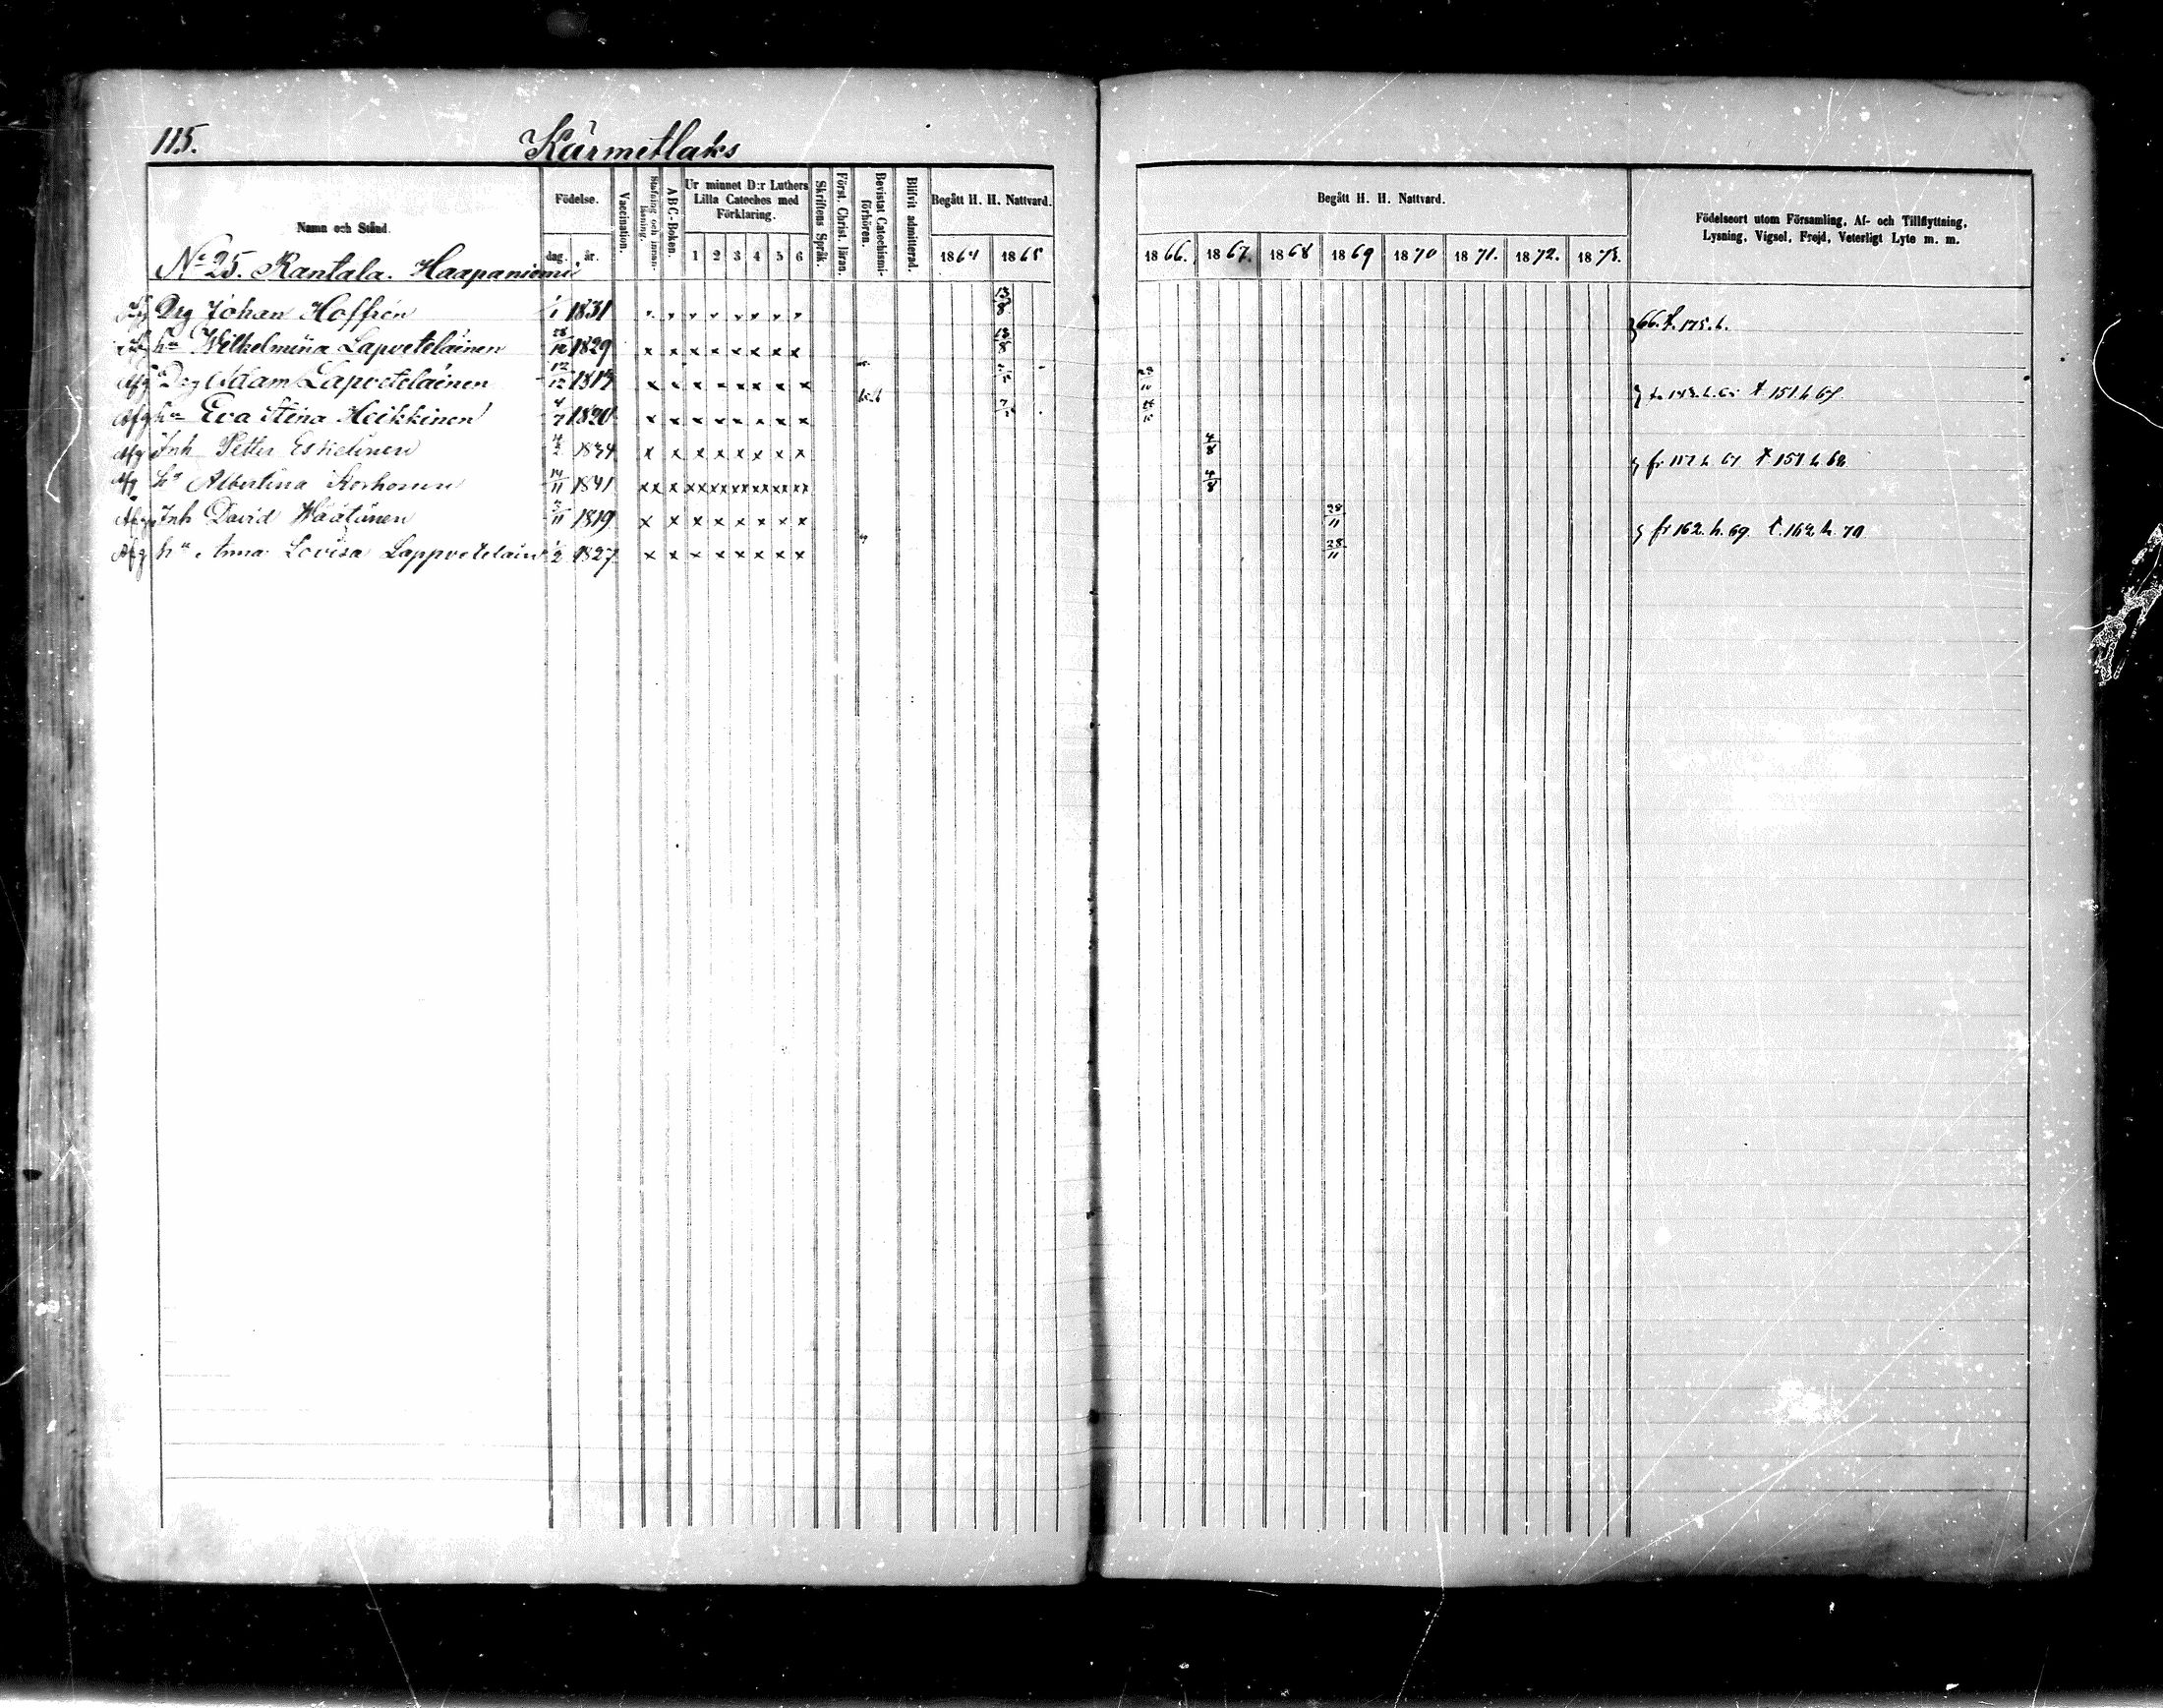 115.
Kärmetlaks
Namn och Stånd.
Födelse.
dag. år.
Vaccination.
Stafning och innanläsning.
ABC-Boken.
Ur minnet D:r Luthers Lilla Cateches med Förklaring.
1 2 3 4 5 6
Skriftens Språk.
Först. Christ. läran.
Bevistat Catechismiförhören.
Blifvit admitterad.
Begått H. H. Nattvard.
1864 1865
Begått H. H. Nattvard.
1866. 1867. 1868 1869 1870 1871. 1872. 1873.
Födelseort utom Församling, Af- och Tillflyttning,
Lysning, Vigsel, Frejd, Veterligt Lyte m. m.
No 25. Rantala. Haapaniemi
Drg Johan Hoffrén 1/1 1831 13/8 66. t. 175. h.
hu Wilhelmina Lapveteläinen 28/12 1829 13/8
Afg Drg Adam Lapveteläinen 12/12 1819 t 151. h 67
Afg hu Eva Stina Heikkinen 4/7 1820
Afg Inh Petter Eskelinen 4/2 1834 4/8 fr 152 h 67 t 151 h 68
Afg hu Albertina Korhonen 14/11 1841 4/8
Afg Inh David Wäätänen 1819 28/11 fr 162. h. 69 t. 162 h. 70
Afg hu Anna Lovisa Lappvetelain 1/2 1827 28/11